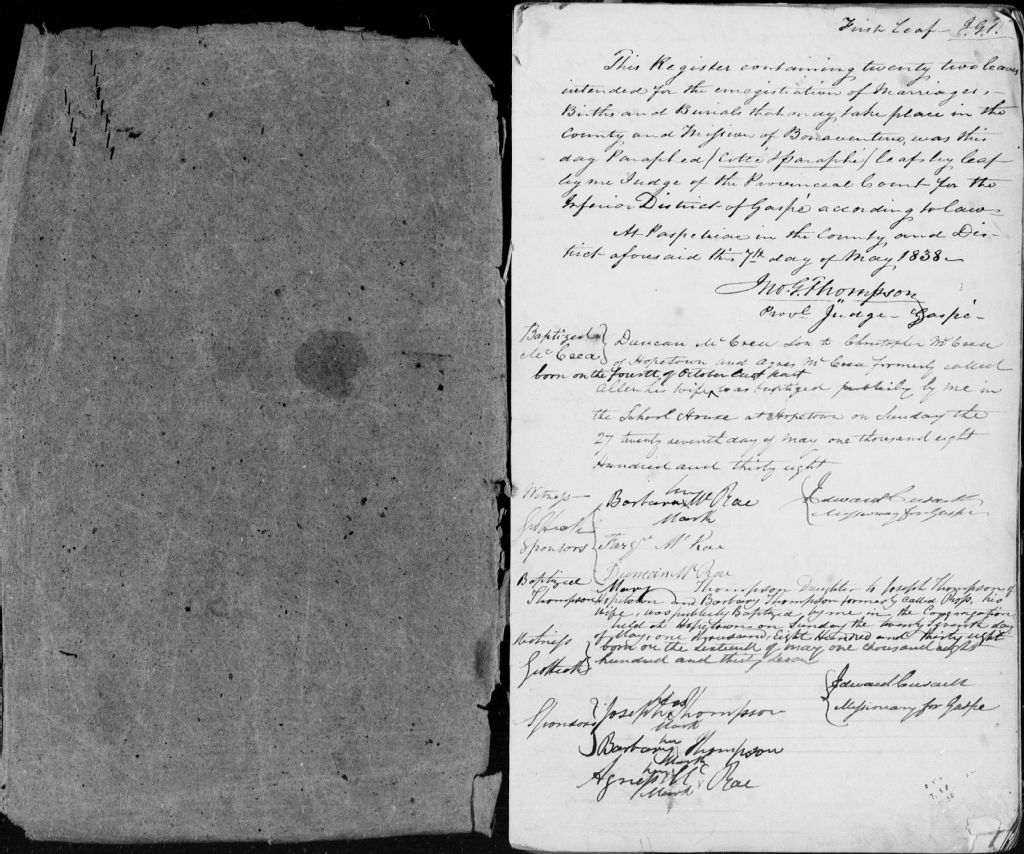 First Leaf J.G.T.
This Register containing twenty two leaves
intended for the enregistration of Marriages,
Births and Burials that may take place in the
County and Mission of Bonaventure, was this
day Paraphed (Cotté & paraphé) leaf by leaf
by me Judge of the Provincial Court for the
Inferior District of Gaspé according to law
At Paspebiac in the County and Dis-
trict aforesaid this 7th day of May 1838
Jno. G. Thompson
Provl. Judge - Gaspé -
Baptized Duncan Mc Crea son to Christopher Mc Crea
Mc Crea of Hopetown and Agnes Mc Crea formerly called
born on the fourth of October last past
Allen his wife, was baptized publicly by me in
the School House at Hopetown on Sunday the
27 twenty seventh day of May one thousand eight
Hundred and thirty eight
Witness Barbara her Mc Rae
Mark
Edward Cusack
Missionary for Gaspe
Sponsors Farqr. Mc Rae
Duncan Mc Rae
Baptized Mary Thompson Daughter to Joseph Thompson of
Thompson Hopetown and Barbary Thompson formerly called Ross, his
wife, was publicly Baptized, by me in the Congregation
held at Hopetown on Sunday the twenty Seventh day
Witness of May, one thousand, Eight Hundred and thirty eight
born on the sixteenth of may one thousand eight
hundred and thirty seven
Edward Cusack
Missionary for Gaspe
Sponsors Joseph his Thompson
Mark
Barbary her Thompson
Mark
Agness her Mc Rae
Mark